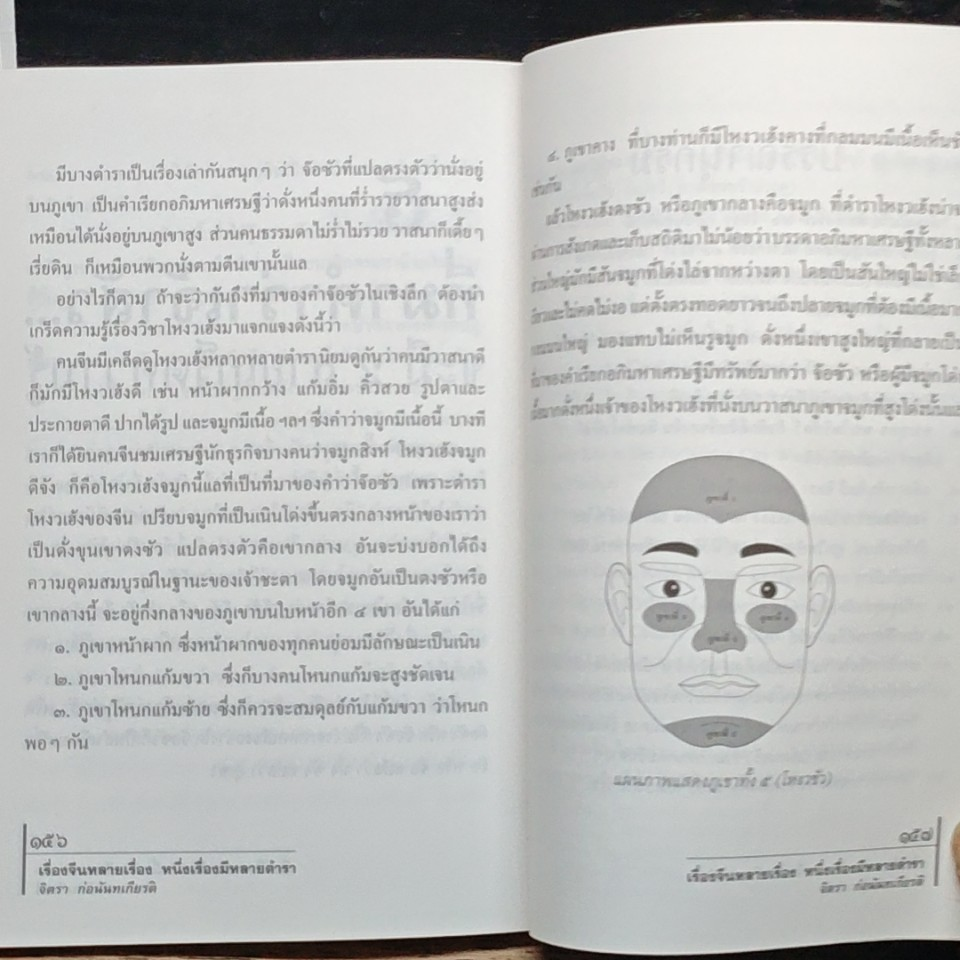 มีบางตำราเป็นเรื่องเล่ากันสนุกๆ ว่า จ๊อซัวที่แปลตรงตัวว่านั่งอยู่
บนภูเขา เป็นคำเรียกอภิมหาเศรษฐีว่าดั่งหนึ่งคนที่ร่ำรวยวาสนาสูงส่ง
เหมือนได้นั่งอยู่บนภูเขาสูง ส่วนคนธรรมดาไม่ร่ำไม่รวย วาสนาก็เตี้ยๆ
เรี่ยดิน ก็เหมือนพวกนั่งตามตีนเขานั้นแล
อย่างไรก็ตาม ถ้าจะว่ากันถึงที่มาของคำจ๊อซัวในเชิงลึก ต้องนำ
เกร็ดความรู้เรื่องวิชาโหงวเฮ้งมาแจกแจงดังนี้ว่า
คนจีนมีเคล็ดดูโหงวเฮ้งหลากหลายตำรานิยมดูกันว่าคนมีวาสนาดี
ก็มักมีโหงวเฮ้งดี เช่น หน้าผากกว้าง แก้มอิ่ม คิ้วสวย รูปตาและ
ประกายตาดี ปากได้รูป และจมูกมีเนื้อ ฯลฯ ซึ่งคำว่าจมูกมีเนื้อนี้ บางที
เราก็ได้ยินคนจีนชมเศรษฐีนักธุรกิจบางคนว่าจมูกสิงห์ โหงวเฮ้งจมูก
ดีจัง ก็คือโหงวเฮ้งจมูกนี้แลที่เป็นที่มาของคำว่าจ๊อซัว เพราะตำรา
โหงวเฮ้งของจีน เปรียบจมูกที่เป็นเนินโด่งขึ้นตรงกลางหน้าของเราว่า
เป็นดั่งขุนเขาตงซัว แปลตรงตัวคือเขากลาง อันจะบ่งบอกได้ถึง
ความอุดมสมบูรณ์ในฐานะของเจ้าชะตา โดยจมูกอันเป็นตงซัวหรือ
เขากลางนี้ จะอยู่กึ่งกลางของภูเขาบนใบหน้าอีก ๔ เขา อันได้แก่
๑. ภูเขาหน้าผาก ซึ่งหน้าผากของทุกคนย่อมมีลักษณะเป็นเนิน
๒. ภูเขาโหนกแก้มขวา ซึ่งก็บางคนโหนกแก้มจะสูงชัดเจน
๓. ภูเขาโหนกแก้มซ้าย ซึ่งก็ควรจะสมดุลย์กับแก้มขวา ว่าโหนก
พอๆ กัน
๑๕๖
เรื่องจีนหลายเรื่อง หนึ่งเรื่องมีหลายตำรา
จิตรา ก่อนันทเกียรติ
๔. ภูเขาคาง ที่บางท่านก็มีโหงวเฮ้งคางที่กลมมนมีเนื้อเห็นชั
เช่นกัน
แล้วโหงวเฮ้งตงซัว หรือภูเขากลางคือจมูก ที่ตำราโหงวเฮ้งน่าจ
ผ่านการสังเกตและเก็บสถิติมาไม่น้อยว่าบรรดาอภิมหาเศรษฐีทั้งหลา
ส่วนใหญ่มักมีสันจมูกที่โด่งไล่จากหว่างตา โดยเป็นสันใหญ่ไม่ใช่เล็
และไม่คดไม่งอ แต่ตั้งตรงทอดยาวจนถึงปลายจมูกที่ต้องมีเนื้อมาก
ใหญ่ มองแทบไม่เห็นรูจมูก ดั่งหนึ่งเขาสูงใหญ่ที่กลายเป็น
ที่มาของคำเรียกอภิมหาเศรษฐีมีทรัพย์มากว่า จ๊อซัว หรือผู้มีจมูกโด่ง
ดั่งหนึ่งเจ้าของโหงวเฮ้งที่นั่งบนวาสนาภูเขาจมูกที่สูงโด่งนั้นแล
แผนภาพแสดงภูเขาทั้ง ๕ (โหงวซัว)
๑๕๗
เรื่องจีนหลายเรื่อง หนึ่งเรื่องมีหลายตำรา
จิตรา ก่อนันทเกียรติ